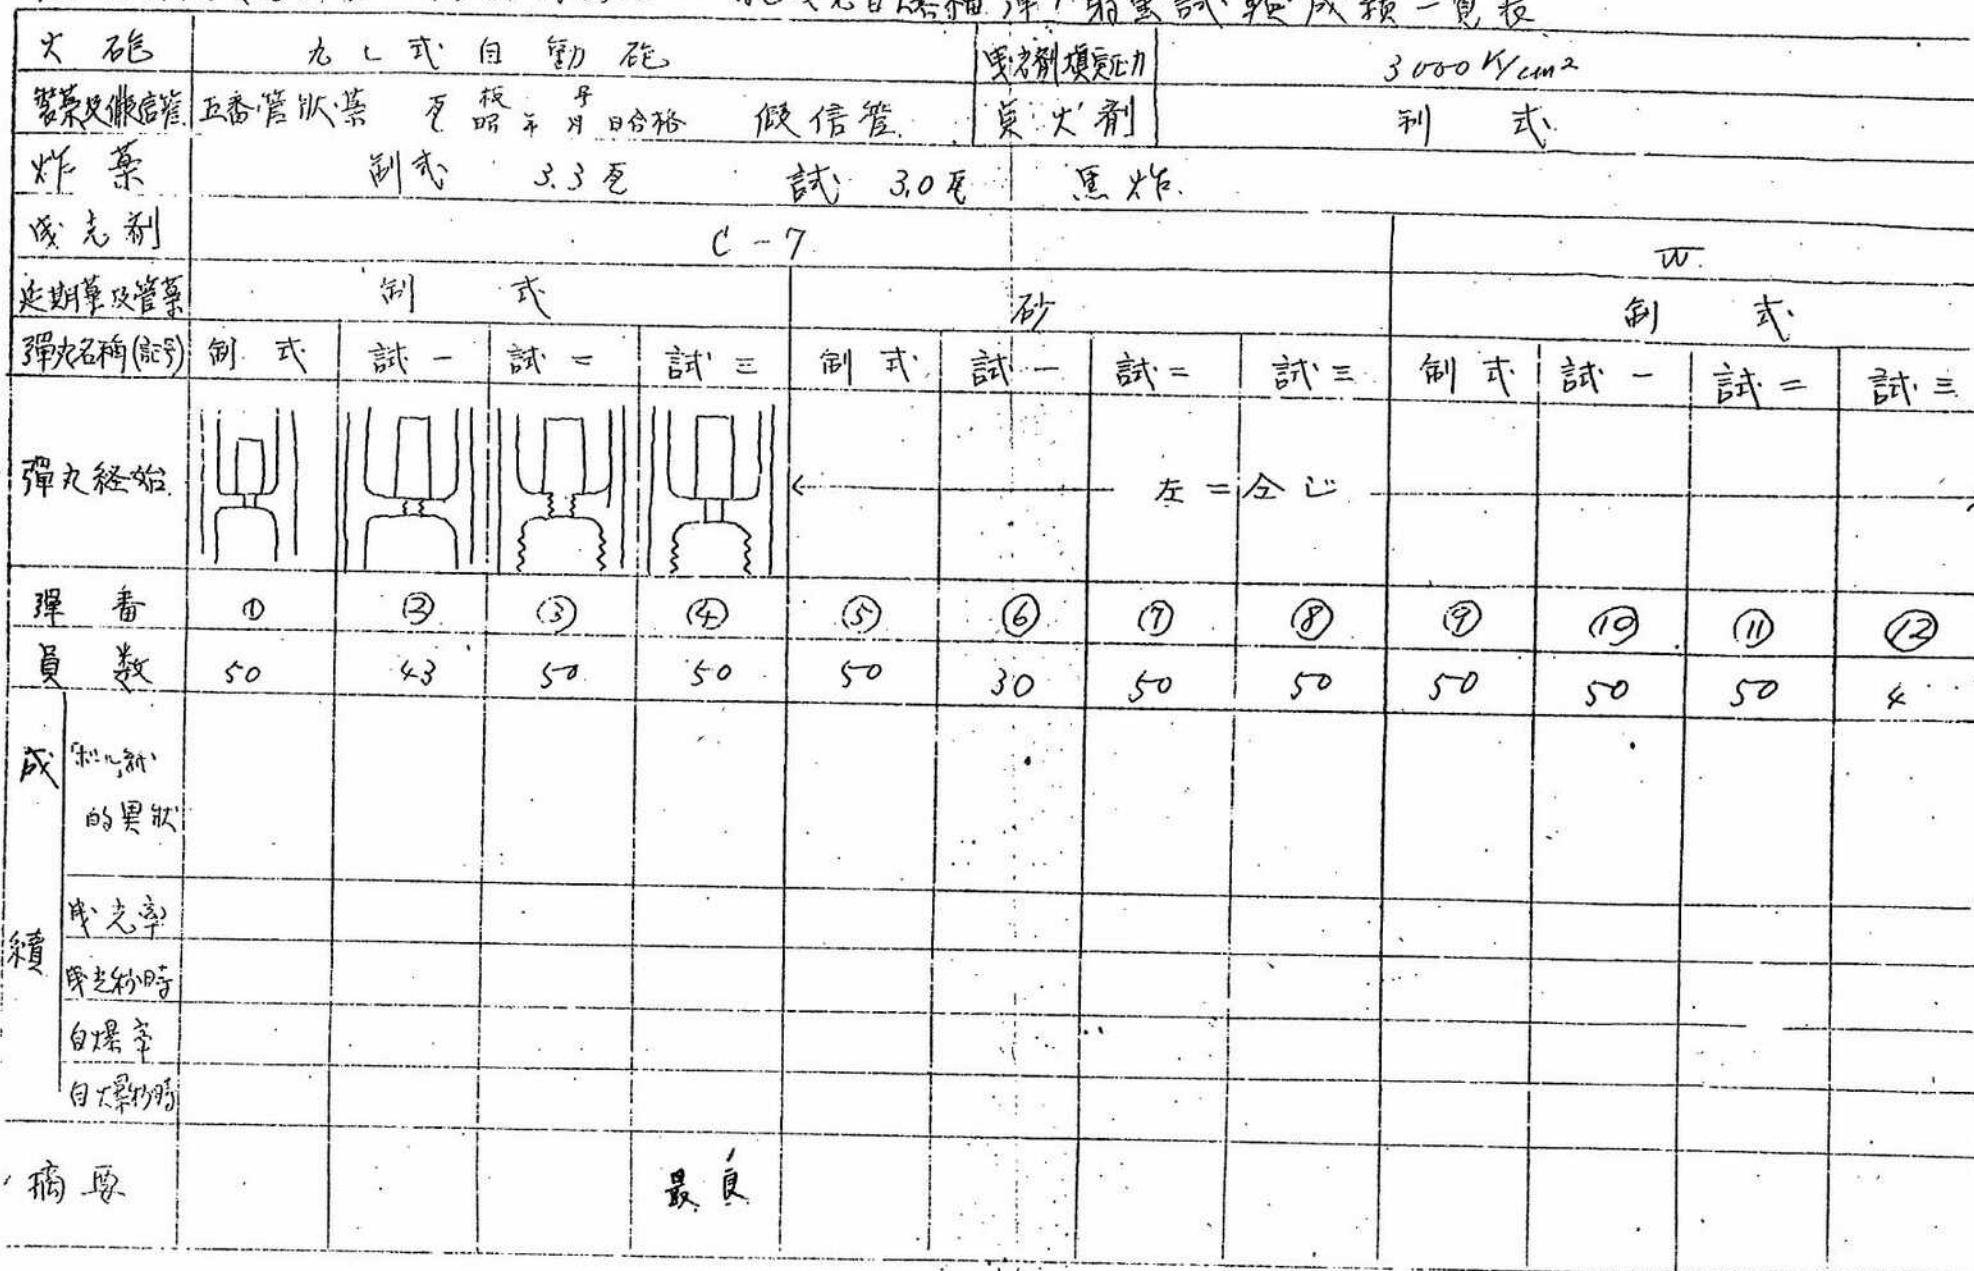 曳光自爆榴彈ノ射撃試験成績一覧表
火砲 九七式自動砲 曳光剤填実圧力 3000K/cm²
装薬及假信管 五番管状薬 瓦 板 号 昭 年 月 日合格 假信管 点火剤 制式
炸薬 制式 3.3瓦 試 3.0瓦 黒炸
曳光剤 C-7
延期薬及管薬 制式 砂 制式
彈丸名称(記号) 制式 試一 試二 試三 制式 試一 試二 試三 制式 試一 試二 試三
彈丸経始 左ニ仝じ
彈番 ① ② ③ ④ ⑤ ⑥ ⑦ ⑧ ⑨ ⑩ ⑪ ⑫
員数 50 43 50 50 50 30 50 50 50 50 50 4
成績
「ボール紙」
的異状
曳光率
曳光秒時
自爆率
自爆秒時
摘要 最良